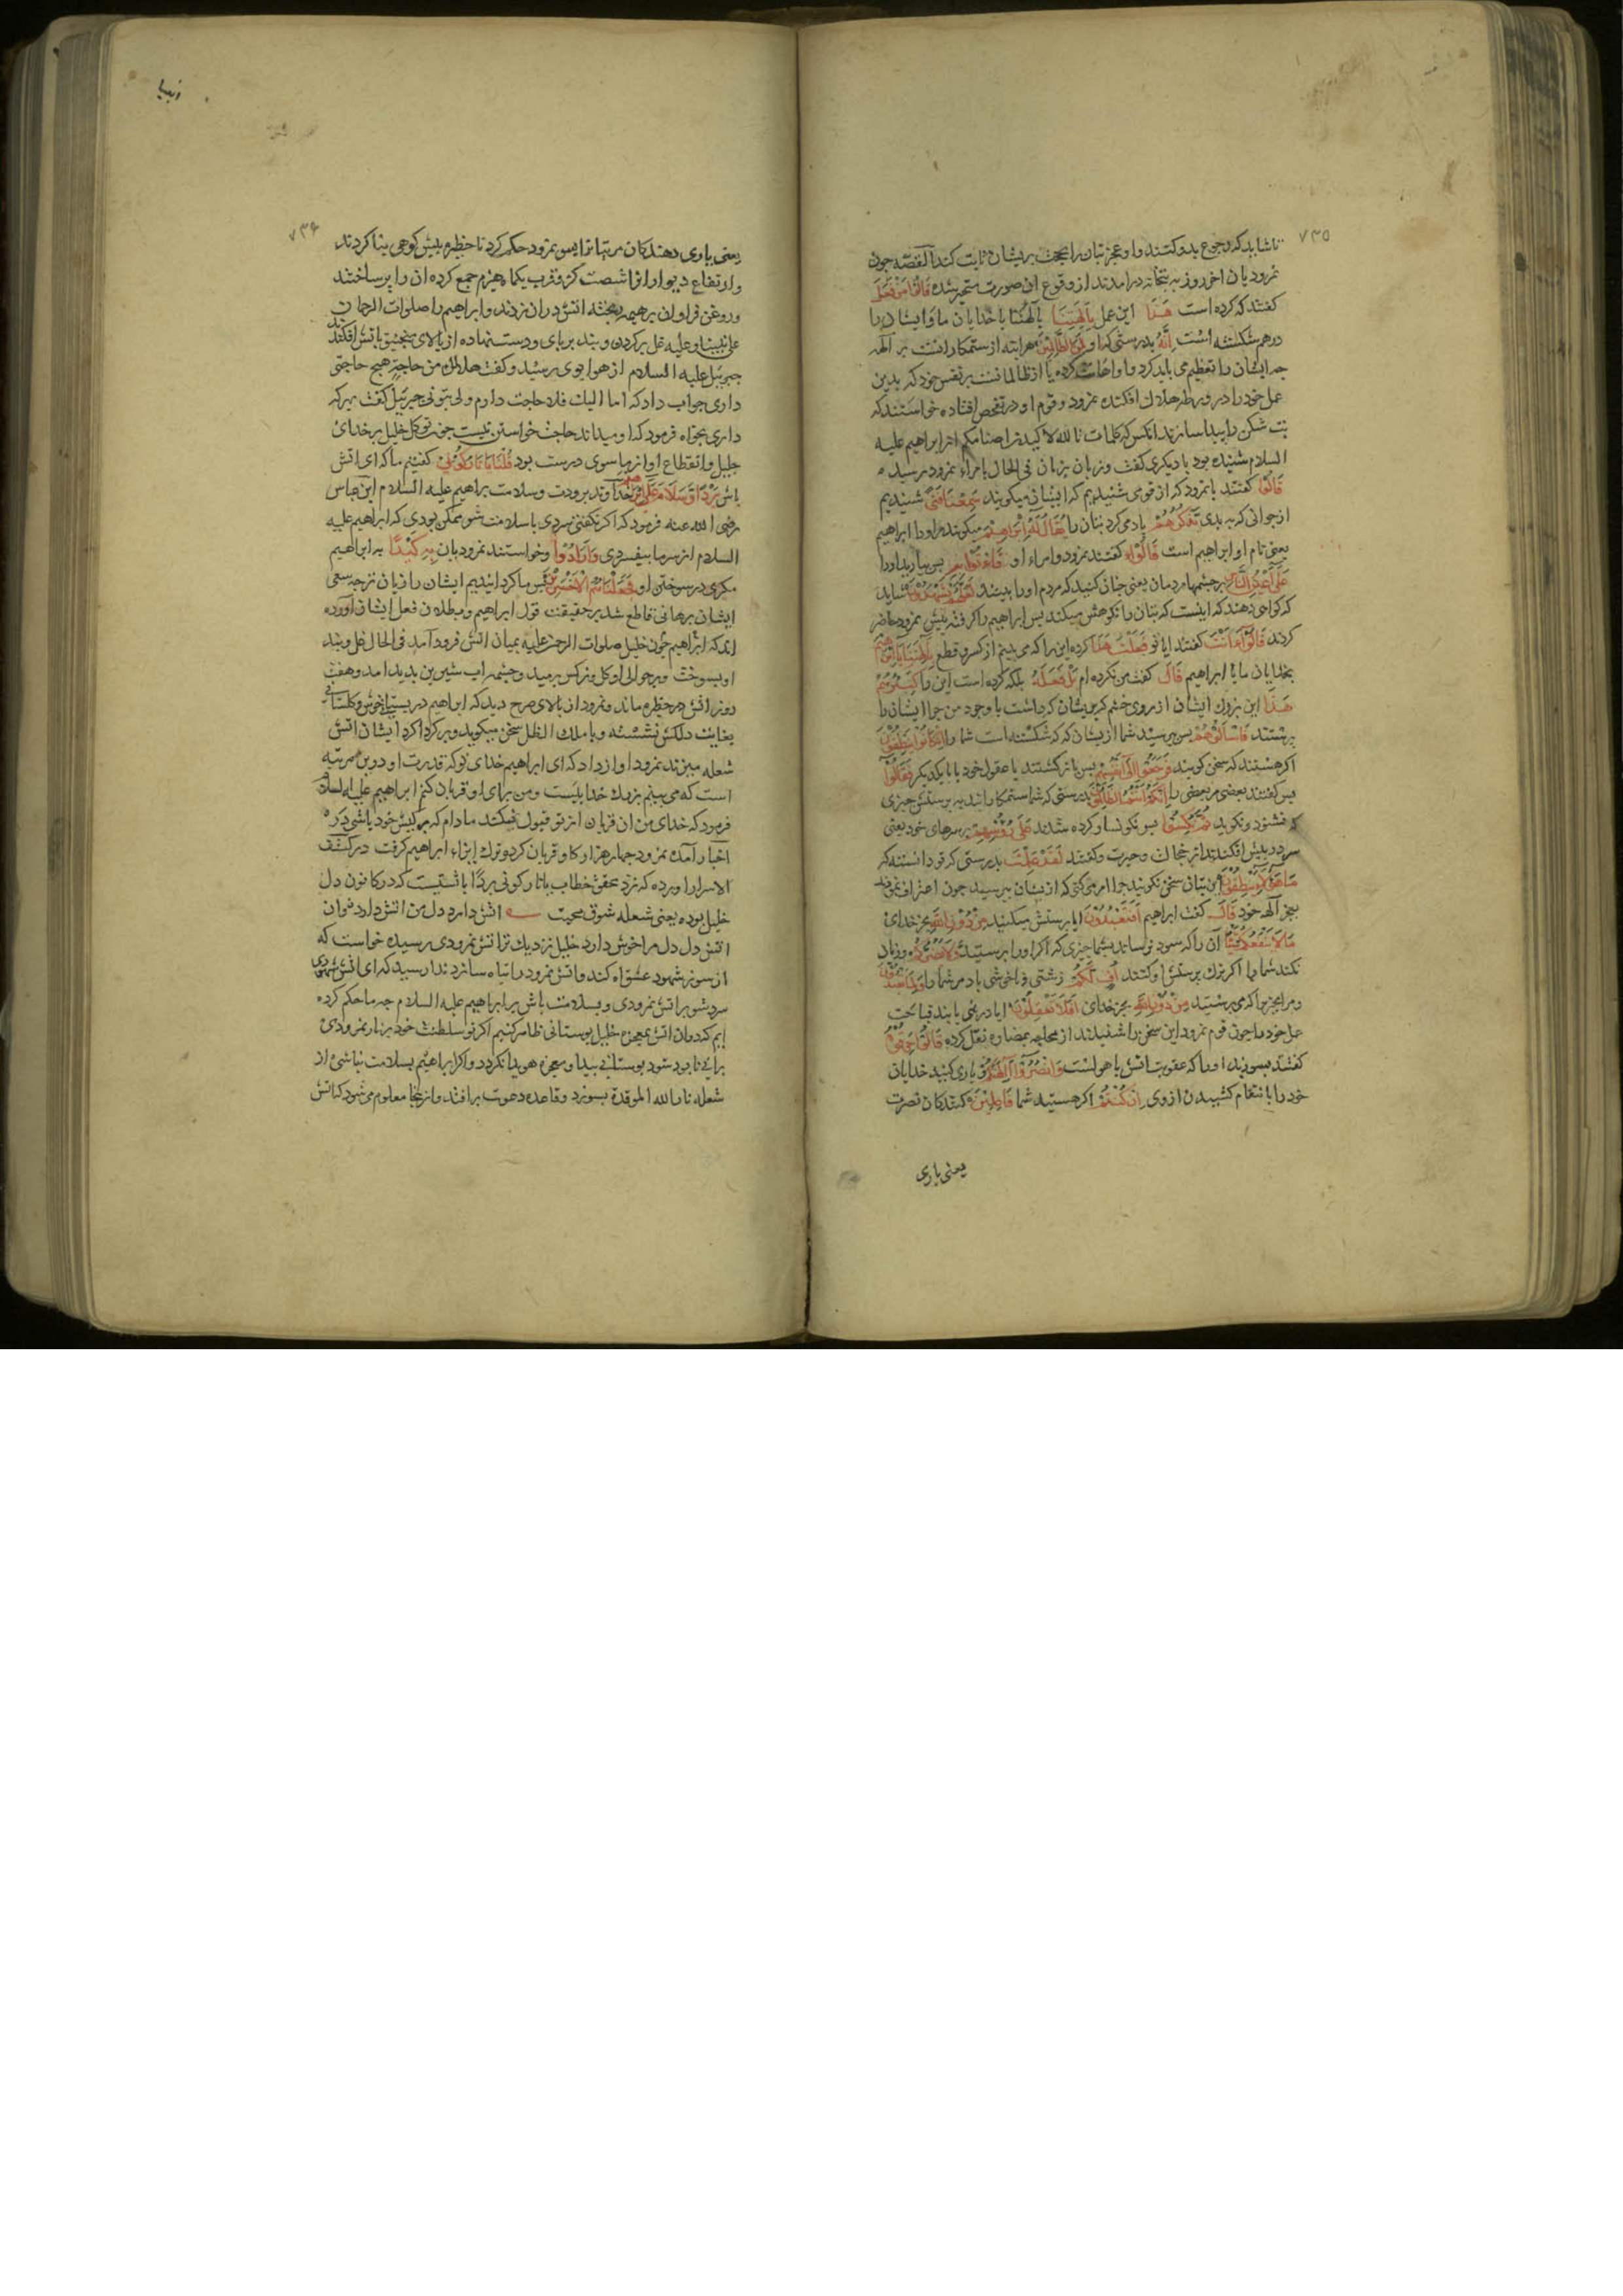 ۷۳۵
تا شاید که رجوع بدو کنند و او عجز بتان را بحجت بریشان ثابت کند القصّه چون
نمرودیان اخر روز به بتخانه درامدند از وقوع ان صورت متحیر شده قَالُوا مَنْ فَعَلَ
گفتند که کرده است هَذَا این عمل بِآلِهَتِنَا بآلهتنا با خدایان ما و ایشان را
درهم شکسته است اِنَّهُ بدرستی که او لَمِنَ الظَّالِمِينَ هر اینه از ستمکارانست بر آلهه
چه ایشان را تعظیم می باید کرد و او اهانت کرده یا از ظالمانست بر نفس خود که بدین
عمل خود را در ورطه هلاک افکنده نمرود و قوم او در تفحص افتاده خواستند که
بت شکن را پیدا سازند انکس که کلمات تالله لاکیدن اصنامکم از ابراهیم علیه
السلام شنیده بود با دیگری گفت و زبان بزبان فی الحال بامراء نمرود رسید ه
قَالُوا گفتند با نمرود که از قومی شنیدیم که ایشان میگویند سَمِعْنَا فَتًى شنیدیم
از جوانی که به بدی يَذْكُرُهُمْ یاد می کرد بتان را يُقَالُ لَهُ اِبْرَاهِيمُ میگویند مر او را ابراهیم
یعنی نام او ابراهیم است قَالُوا گفتند نمرود و امراء او فَأْتُوا بِهِ پس بیارید او را
عَلَى اَعْيُنِ النَّاسِ بر چشمهاء مردمان یعنی چنان کنید که مردم او را ببینند لَعَلَّهُمْ يَشْهَدُونَ شاید
که گواهی دهند که اینست که بتان را نکوهش میکند پس ابراهیم را گرفته پیش نمرود حاضر
کردند قَالُوا ءَاَنْتَ گفتند ایا تو فَعَلْتَ هَذَا کرده این را که می بینم از کسر و قطع بِآلِهَتِنَا يَا اِبْرَاهِيمُ
بخدایان ما یا ابراهیم قَالَ گفت من نکرده ام بَلْ فَعَلَهُ بلکه کرده است این را كَبِيرُهُمْ
هَذَا این بزرک ایشان از روی خشم که بریشان که داشت با وجود من چرا ایشان را
پرستند فَاسْأَلُوهُمْ پس بپرسید شما از یشان که که شکسته است شما را اِنْ كَانُوا يَنْطِقُونَ
اگر هستند که سخن گویند فَرَجَعُوا اِلَى اَنْفُسِهِمْ پس بازگشتند با عقول خود یا با یکدیگر فَقَالُوا
پس گفتند بعضی مر بعضی را اِنَّكُمْ اَنْتُمُ الظَّالِمُونَ بدرستی که شما ستمکارانید به پرستش چیزی
که نشنود و نگوید ثُمَّ نُكِسُوا پس نگونسار کرده شدند عَلَى رُءُوسِهِمْ بر سرهای خود یعنی
سر در پیش افکندند از خجالت و حیرت و گفتند لَقَدْ عَلِمْتَ بدرستی که تو دانسته که
مَا هَؤُلَاءِ يَنْطِقُونَ این بتان سخن نگویند چرا امر می کنی که از یشان بپرسید چون اعتراف نمودند
بعجز آلهه خود قَالَ گفت ابراهیم اَفَتَعْبُدُونَ ایا پرستش میکنید مِنْ دُونِ اللهِ بجز خدای
مَا لَا يَنْفَعُكُمْ شَيْئًا آن را که سود نرساند بشما چیزی که اگر او را پرستید وَلَا يَضُرُّكُمْ و زیان
نکند شما را اگر ترک پرستش او کنند اُفٍّ لَكُمْ زشتی و ناخوشی باد مر شما را وَلِمَا تَعْبُدُونَ
و مر انچیز را که می پرستید مِنْ دُونِ اللهِ بجز خدای اَفَلَا تَعْقِلُونَ ایا در نمی یابند قباحت
عمل خود را چون قوم نمرود این سخن را شنیدند از محاجه بمضاره نقل کرده قَالُوا حَرِّقُوهُ
گفتند بسوزید او را که عقوبت اتش با هولست وَانْصُرُوا آلِهَتَكُمْ و یاری کنید خدایان
خود را با نتقام کشیدن از وی اِنْ كُنْتُمْ اگر هستید شما فَاعِلِينَ کنندکان نصرت
یعنی یاری
۷۳۶
یعنی یاری دهندکان مر بتها را پس نمرود حکم کرد تا حظیره پیش کوهی بنا کردند
و ارتفاع دیوار او را شصت گز و قرب یکماه هیزم جمع کرده ان را پر ساختند
و روغن فراوان بر هیمه ریخته اتش دران زدند و ابراهیم را صلوات الرحمان
علی نبینا و علیه غل بر کردن و بند بر پای و دست نهاده از بالای منجنیق باتش افکندند
جبرئیل علیه السلام از هوا بوی رسید و گفت هل لك من حاجة هیچ حاجتی
داری جواب داد که اما الیك فلا حاجت دارم ولی بتو نی جبرئیل گفت بهر که
داری بخواه فرمود که او میداند حاجت خواستن نیست چون توکل خلیل بر خدای
جلیل و انقطاع او از ما سوی درست بود قُلْنَا يَا نَارُ كُونِي گفتیم ما که ای اتش
باش بَرْدًا وَسَلَامًا عَلَى اِبْرَاهِيمَ خداوند برودت و سلامت بر ابراهیم علیه السلام ابن عباس
رضی الله عنه فرمود که اگر نگفتی سردی با سلامت شو ممکن بودی که ابراهیم علیه
السلام از سرما بیفسردی وَاَرَادُوا و خواستند نمرودیان بِهِ كَيْدًا به ابراهیم
مکری در سوختن او فَجَعَلْنَاهُمُ الْاَخْسَرِينَ پس ما کردانیدیم ایشان را زیان زده چه سعی
ایشان برهانی قاطع شد بر حقیقت قول ابراهیم و بطلان فعل ایشان آورده
اند که ابراهیم چون خلیل صلوات الرحمن علیه بمیان اتش فرود آمد فی الحال غل و بند
او بسوخت و بر حوالی او گل و نرکس برمید و چشمه اب شیرین پدید امد و هفت
روز اتش در حظیره ماند و نمرود از بالای صرح دید که ابراهیم در بستانی خوش و گلستانی
بغایت دلکش نشسته و با ملك الظل سخن میگوید و بر کرداکرد ایشان اتش
شعله میزند نمرود اواز داد که ای ابراهیم خدای تو که قدرت او درین مرتبه
است که می بینم بزرك خدایست و من برای او قربان کنم ابراهیم علیه السلام
فرمود که خدای من ان قربان از تو قبول نمیکند مادام که بر کیش خود باشی در
اخبار آمده نمرود چهار هزار کاو قربان کرد و ترك ایذاء ابراهیم گرفت در کشف
الاسرار اورده که نزد محقق خطاب یا نار کونی بردًا باتشیست که در کانون دل
خلیل بوده یعنی شعله شوق محبت اتش دارد دل من اتش دارد توان
اتش دل دل مرا خوش دارد خلیل نزدیك تر اتش نمرودی رسیده خواست که
از سوز شهود عشق اه کند و اتش نمرود را تباه سازد ندا رسید که ای اتش شهودی
سرد شو بر اتش نمرودی و بسلامت باش بر ابراهیم علیه السلام چه ما حکم کرده
ایم که دران اتش بمعجزه خلیل بوستانی ظاهر کنیم اگر تو سلطنت خود بر نار نمرودی
برانی نابود شود بوستانی پیدا و معجزه هویدا نکردد و اگر ابراهیم بسلامت نباشی از
شعله نار الله الموقدة بسوزد و قاعده دعوت بر افتد و ازینجا معلوم می شود که اتش